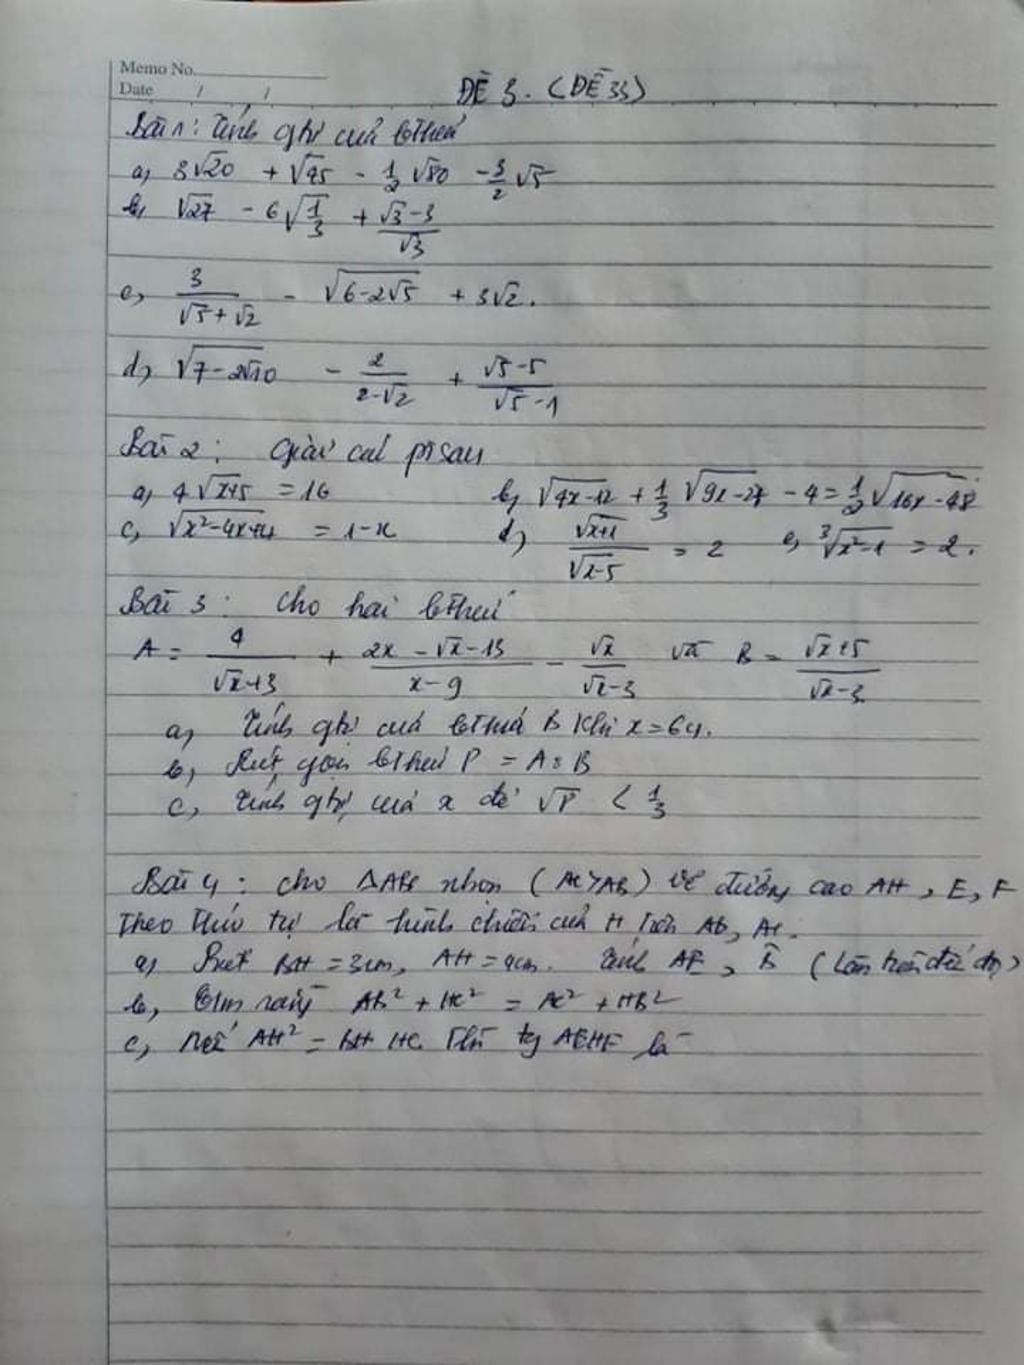 Memo No.
Date / /
ĐỀ 3. (ĐỀ 33)
Bài 1: Tính gtrị của bthức
a) 3√20 + √45 - 1/2 √80 - 3/2 √5
b) √27 - 6√(1/3) + (√3-3)/√3
c) 3/(√5+√2) - √(6-2√5) + 3√2.
d) √(7-2√10) - 2/(2-√2) + (√5-5)/(√5-1)
Bài 2: Giải các pt sau
a) 4√(x+5) = 16 b) √(4x-12) + 1/3 √(9x-27) - 4 = 1/2 √(16x-48)
c) √(x²-4x+4) = 1-x d) √(x+1)/√(x-5) = 2 e) ∛(x²-1) = 2.
Bài 3: Cho hai bthức
A = 4/(√x+3) + (2x-√x-13)/(x-9) - √x/(√x-3) và B = (√x+5)/(√x-3)
a) Tính gtrị của bthức B khi x=64.
b) Rút gọn bthức P = A:B
c) Tính gtrị của x để √P < 1/3
Bài 4: Cho ΔABC nhọn (AC>AB) vẽ đường cao AH, E, F
Theo thứ tự là hình chiếu của H trên AB, AC.
a) BH = 3cm, AH = 4cm. Tính AE, B̂ (Làm tròn đến độ)
b) Cm rằng AB² + HC² = AC² + HB²
c) Nếu AH² = BH.HC thì tg AEHF là